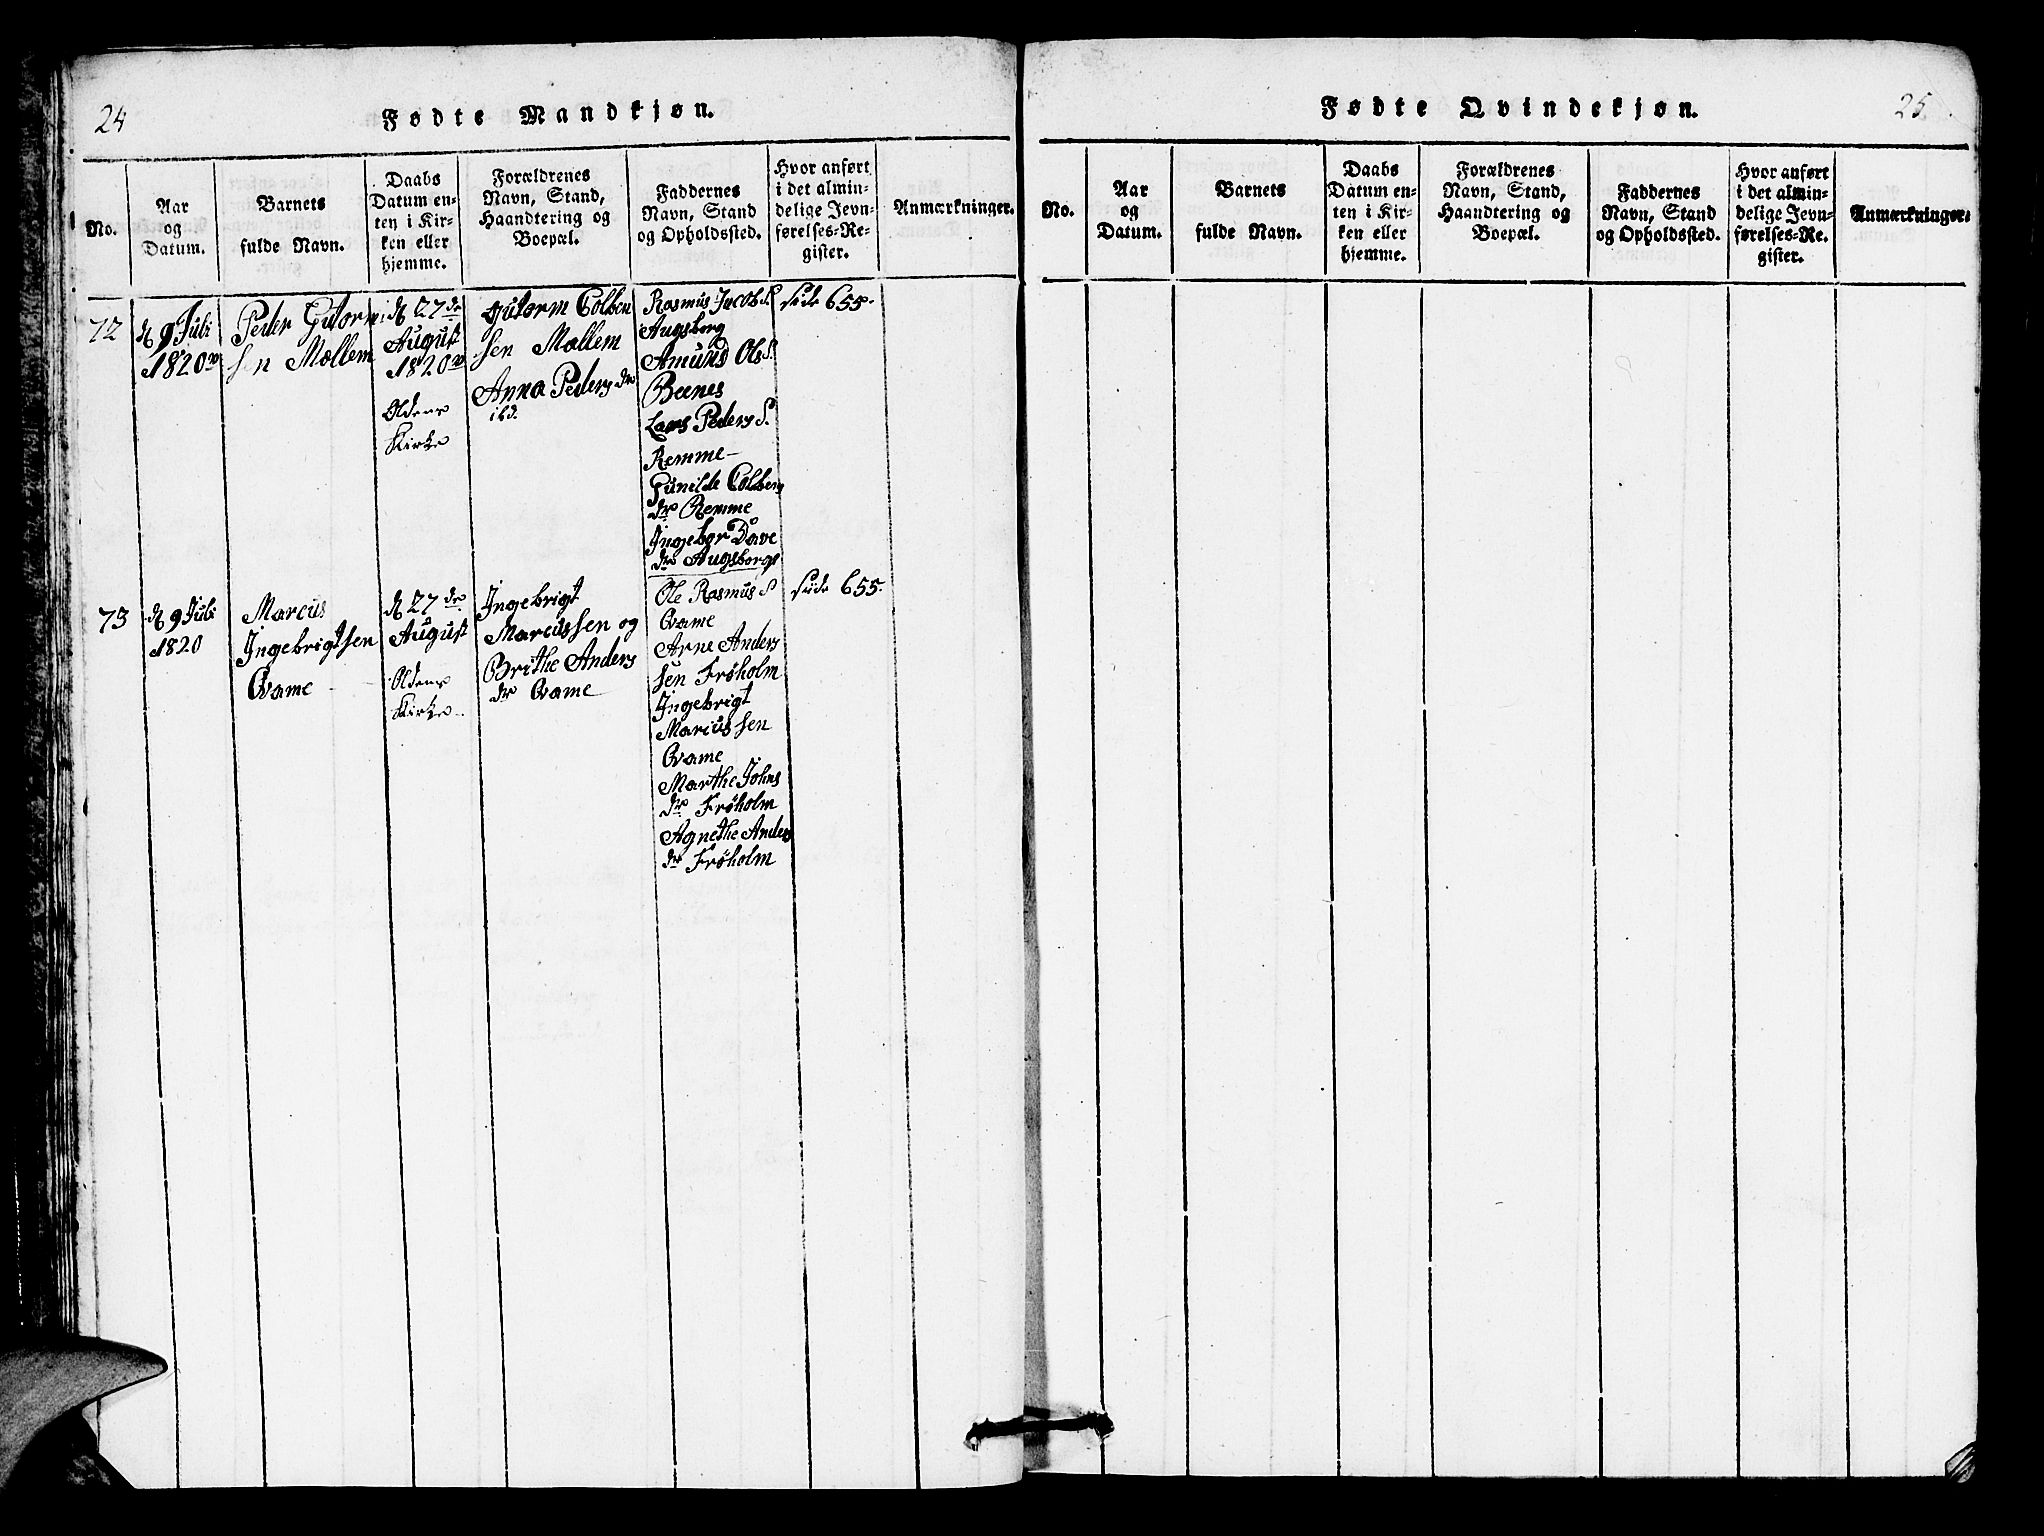 24
Fødte Mandkjøn.
No.
Aar
og
Datum.
Barnets
fulde Navn.
Daabs
Datum en-
ten i Kir-
ken eller
hjemme.
Forældrenes
Navn, Stand,
Haandtering og
Boepæl.
Faddernes
Navn, Stand
og Opholdssted.
Hvor anført
i det almin-
delige Jevn-
førelses-Re-
gister.
Anmærkninger.
72
d 9 Juli
1820
Peder Gutorm
sen Mællem
d 27de
August
1820
Oldens
Kirke
Gutorm Colben
sen Mællem
Anna Peders dr
ibd.
Rasmus Jacobs S.
Augsborg
Amund Ols S.
Beenes
Lars Peders S.
Remme
Gunilde Colbens
dr Remme
Ingebor Dave
dr Augsborg
side 655.
73
d 9 Juli
1820
Marcus
Ingebrigtsen
Qvame
d 27de
August
Oldens
Kirke
Ingebrigt
Marcussen og
Brithe Anders
dr Qvame
Ole Rasmus S
Qvame
Arne Anders
sen Frøholm
Ingebrigt
Marcussen
Qvame
Marthe Johns
dr Frøholm
Agnethe Anders
dr Frøholm
side 655.
25
Fødte Qvindekjøn.
No.
Aar
og
Datum.
Barnets
fulde Navn.
Daabs
Datum en-
ten i Kir-
ken eller
hjemme.
Forældrenes
Navn, Stand,
Haandtering og
Boepæl.
Faddernes
Navn, Stand
og Opholdssted.
Hvor anført
i det almin-
delige Jevn-
førelses-Re-
gister.
Anmærkninger.